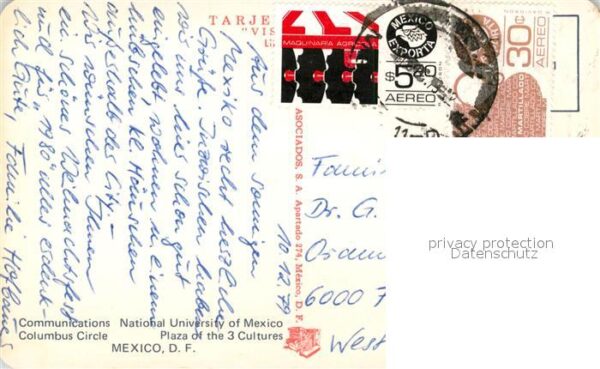 TARJE
"VIS
MAQUINARIA AGRICOLA
MEXICO
EXPORTA
$5.20
AEREO
30¢
AEREO
MARTILLADO
10.12.79
Aus dem sonnigen
Mexiko recht herzliche
Grüße. Inzwischen haben
wir uns hier schon gut
eingelebt, wohnen in einem
hübschen kl. Häuschen
außerhalb der City.
Wir wünschen Ihnen
ein schönes Weihnachtsfest
und für "1980" alles erdenk-
lich Gute, Familie
ASOCIADOS, S. A. Apartado 274, México, D. F.
Dr. G.
6000 F
West
privacy protection
Datenschutz
Communications National University of Mexico
Columbus Circle Plaza of the 3 Cultures
MEXICO, D. F.